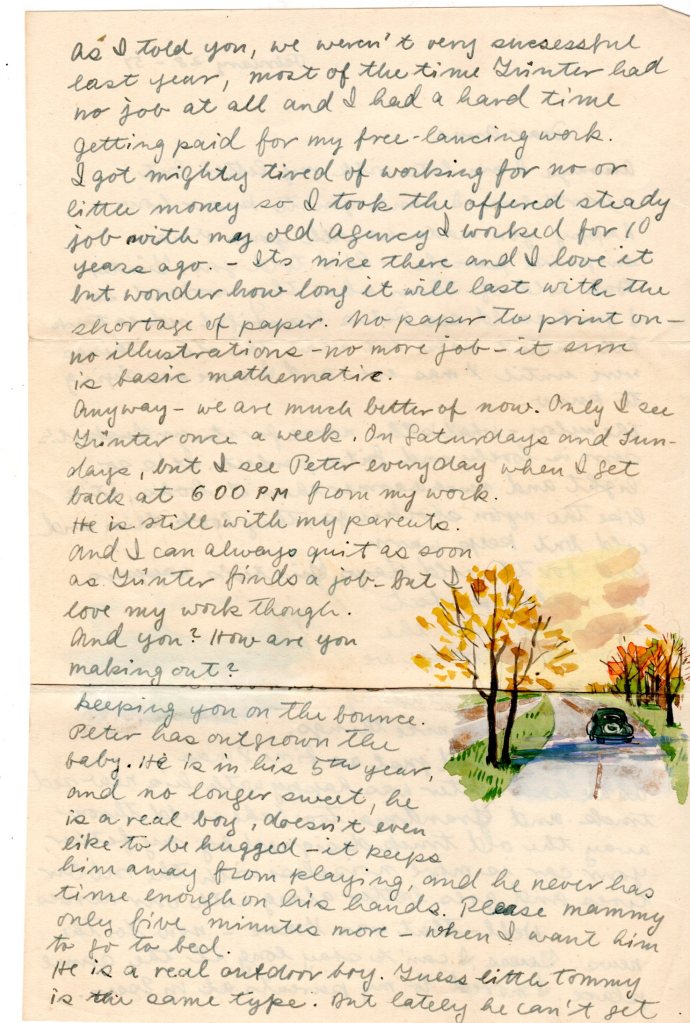 As I told you, we weren't very sucsessful
last year, most of the time Günter had
no job at all and I had a hard time
getting paid for my free-lancing work.
I got mighty tired of working for no or
little money so I took the offered steady
job with my old agency I worked for 10
years ago. - Its nice there and I love it
but wonder how long it will last with the
shortage of paper. No paper to print on -
no illustrations - no more job - it sure
is basic mathematic.
Anyway - we are much better of now. Only I see
Günter once a week. On Saturdays and Sun-
days, but I see Peter everyday when I get
back at 6 00 PM from my work.
He is still with my parents.
And I can always quit as soon
as Günter finds a job - but I
love my work though.
And you? How are you
making out?
keeping you on the bounce.
Peter has outgrown the
baby. He is in his 5th year,
and no longer sweet, he
is a real boy, doesn't even
like to be hugged - it keeps
him away from playing, and he never has
time enough on his hands. Please mammy
only five minutes more - when I want him
to go to bed.
He is a real outdoor boy. Guess little Tommy
is the same type. But lately he can't get